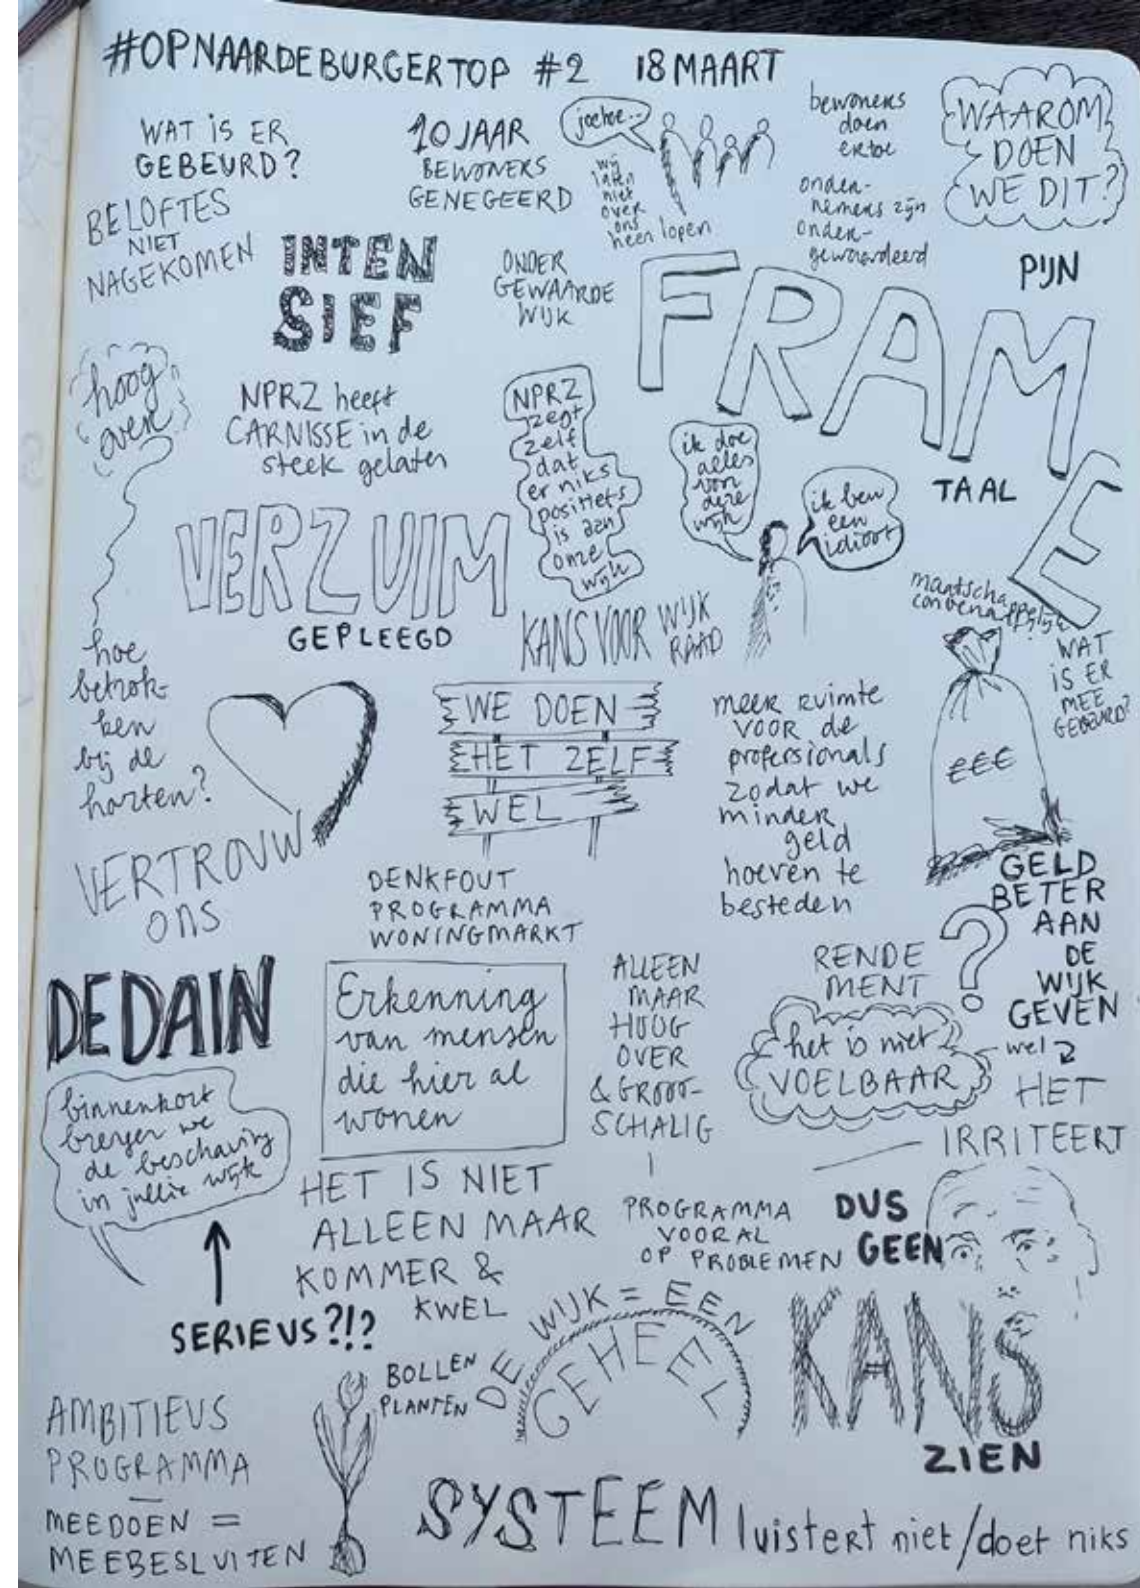 #OPNAARDEBURGERTOP #2 18 MAART
WAT IS ER
GEBEURD?
BELOFTES
NIET
NAGEKOMEN
10 JAAR
BEWONERS
GENEGEERD
joehoe...
wij
laten
niet
over
ons
heen lopen
bewoners
doen
ertoe
onder-
nemers zijn
onder-
gewaardeerd
WAAROM
DOEN
WE DIT?
INTEN
SIEF
ONDER
GEWAARDE
WIJK
FRAME
PIJN
TAAL
hoog
over
NPRZ heeft
CARNISSE in de
steek gelaten
NPRZ
zegt
zelf
dat
er niks
positiefs
is aan
onze
wijk
ik doe
alles
voor
deze
wijk
ik ben
een
idioot
VERZUIM
GEPLEEGD
KANS VOOR WIJK
RAAD
maatschappelijk
convenant
WAT
IS ER
MEE
GEBEURD?
€€€
hoe
betrok-
ken
bij de
harten?
VERTROUW
ONS
WE DOEN
HET ZELF
WEL
meer ruimte
VOOR de
professionals
zodat we
minder
geld
hoeven te
besteden
GELD
BETER
AAN
DE
WIJK
GEVEN
?
DENKFOUT
PROGRAMMA
WONINGMARKT
DEDAIN
Erkenning
van mensen
die hier al
wonen
ALLEEN
MAAR
HOOG
OVER
& GROOT-
SCHALIG
RENDE
MENT
het is niet
VOELBAAR
wel
HET
IRRITEERT
binnenkort
brengen we
de beschaving
in jullie wijk
SERIEUS?!?
HET IS NIET
ALLEEN MAAR
KOMMER &
KWEL
PROGRAMMA
VOORAL
OP PROBLEMEN
DUS
GEEN
KANS
ZIEN
DE WIJK = EEN
GEHEEL
BOLLEN
PLANTEN
AMBITIEUS
PROGRAMMA
—
MEEDOEN =
MEEBESLUITEN
SYSTEEM luistert niet/doet niks